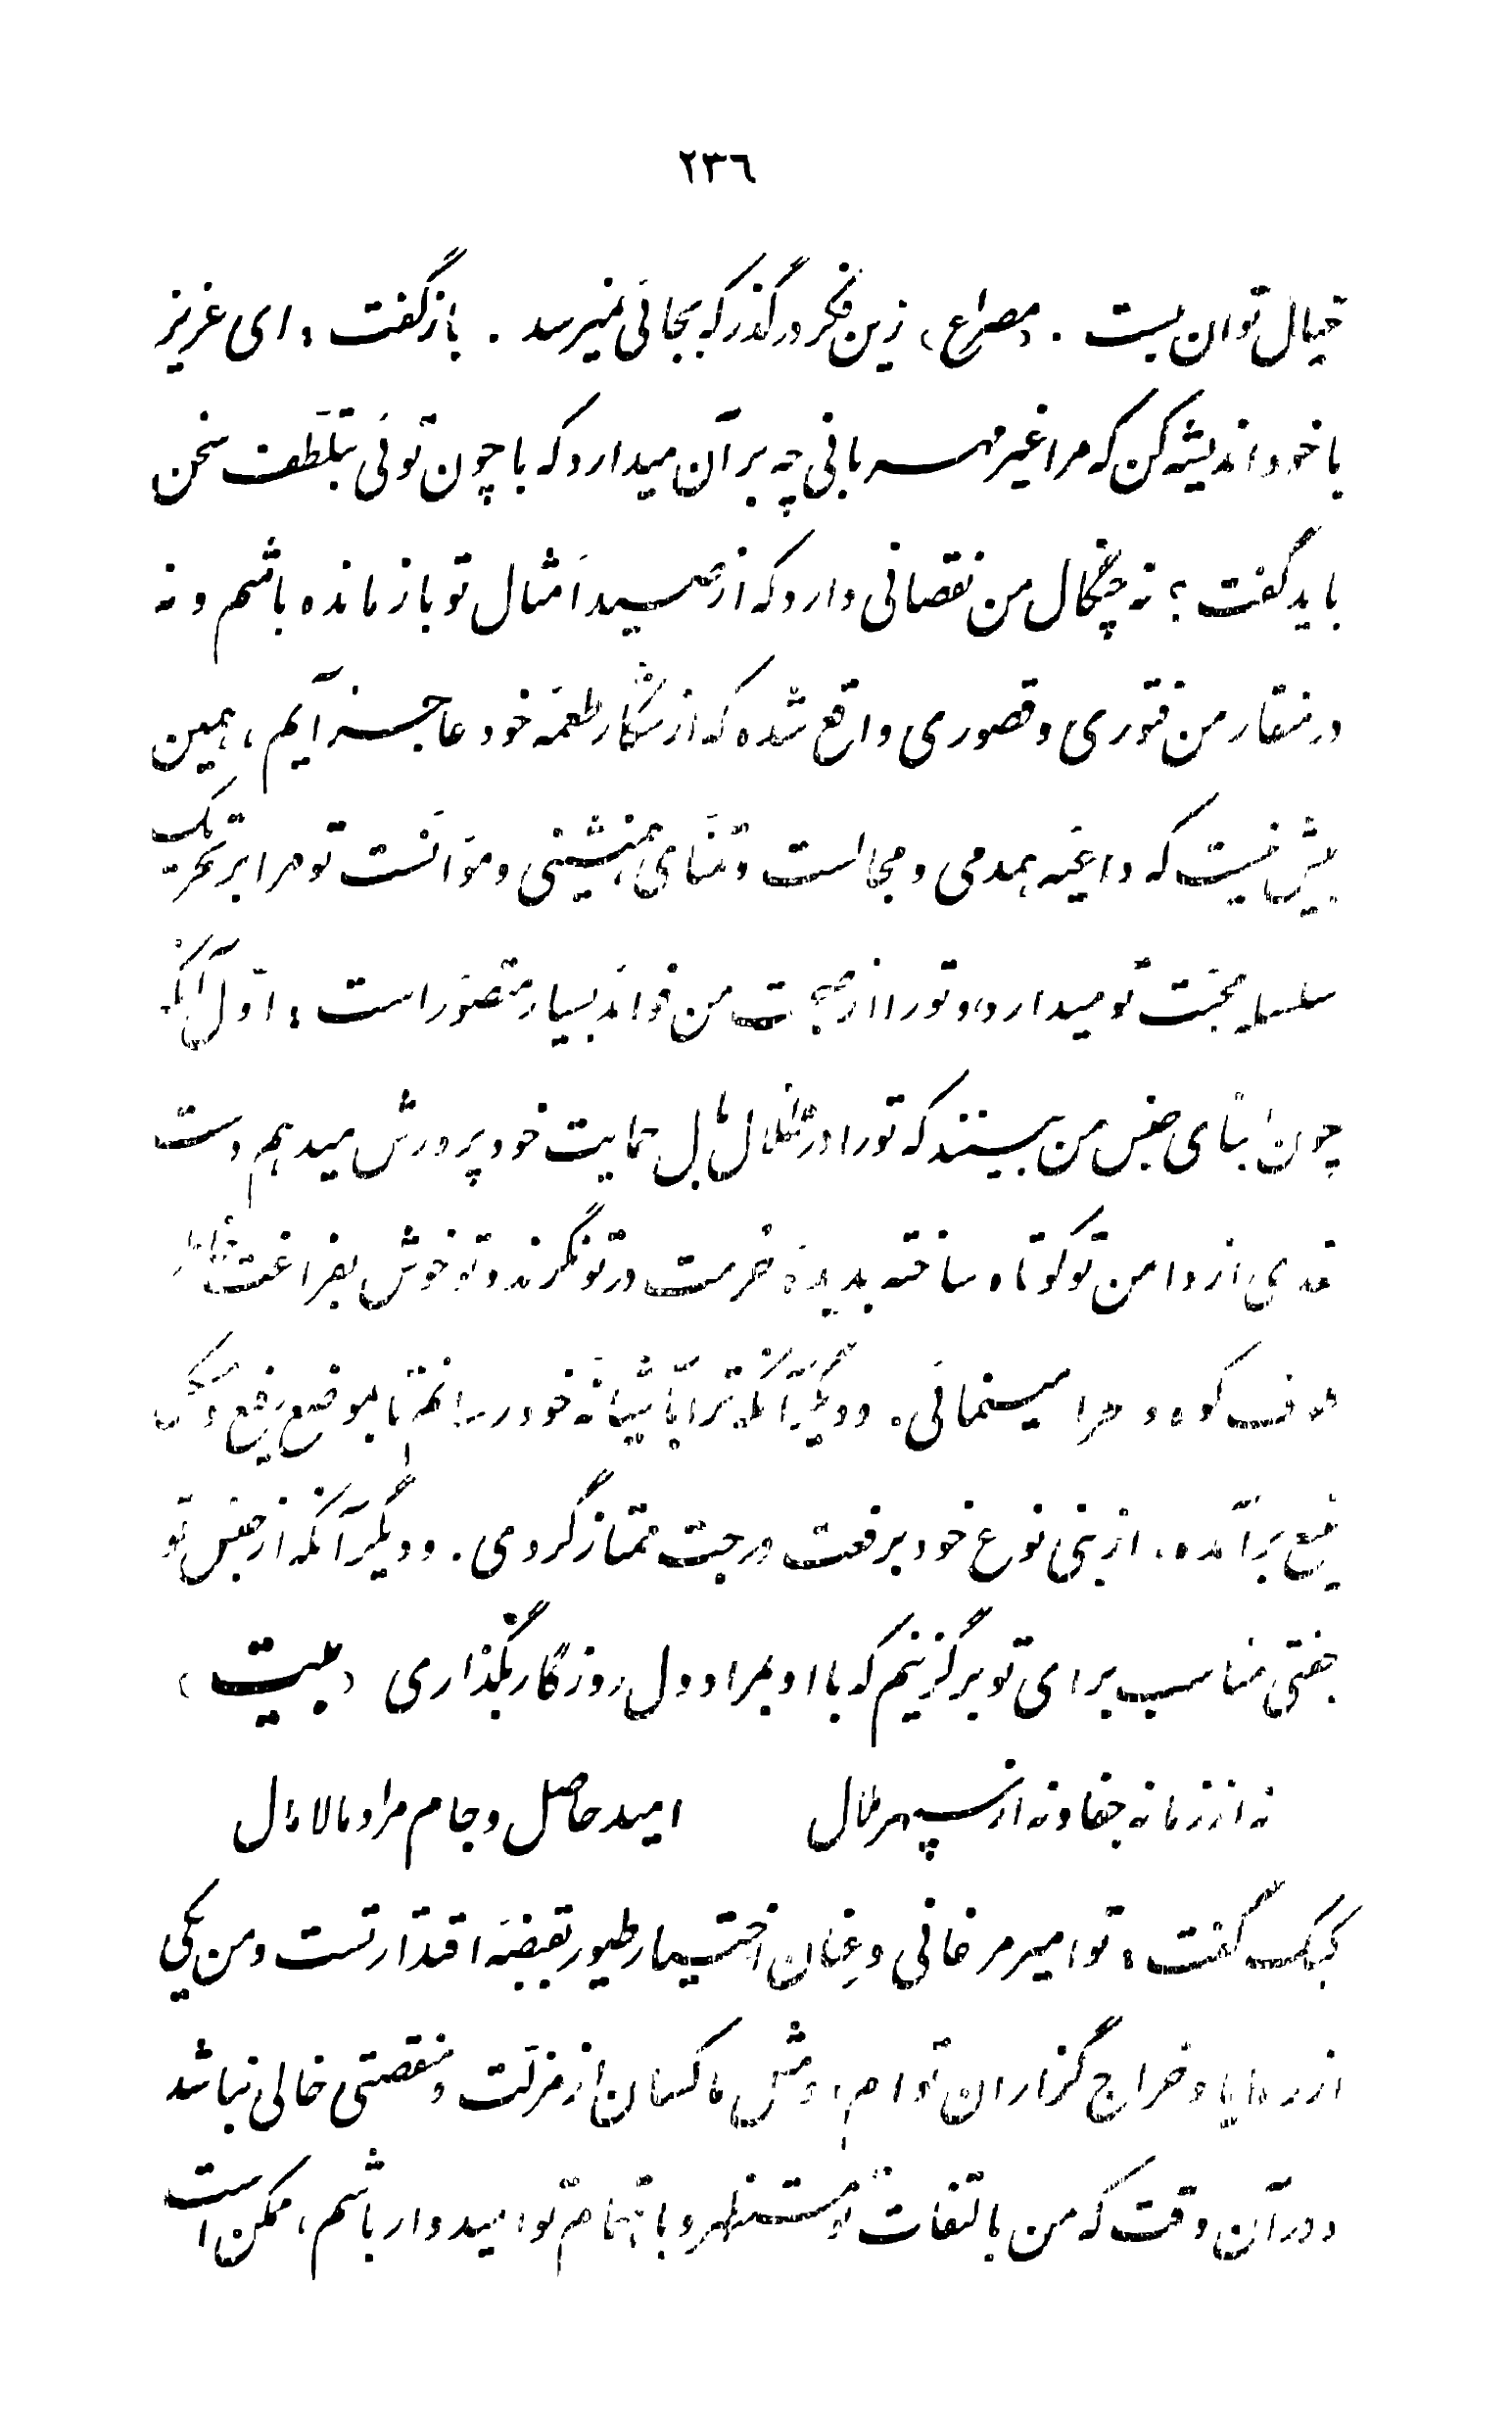 ٢٣٦
خیال توان بست . (مصراع) زین فکر درگذر که بجائی نمیرسد . باز گفت : ای عزیز
با خود اندیشه کن که مرا غیر مهربانی چه بر آن میدارد که با چون توئی بتلطّف سخن
باید گفت ؟ نه چنگال من نقصانی دارد که از صید امثال تو باز مانده باشم و نه
در منقار من فتوری و قصوری واقع شده که از شکار طعمهٔ خود عاجز آیم ، همین
بیش نیست که داعیهٔ همدمی و مجالست و تمنّای همنشینی و موانست تو مرا بر تحریک
سلسلهٔ محبّت تو میدارد ، و تو را از صحبت من فوائد بسیار متصوّر است : اوّل آنکه
چون ابنای جنس من ببینند که تو را در ظلال بال حمایت خود پرورش میدهم دست
تعدی از دامن تو کوتاه ساخته بدیدهٔ حرمت در تو نگرند و تو خوش بفراغت خاطر
طوف کوه و صحرا مینمائی . و دیگر آنکه ترا بآشیانهٔ خود رسانم تا بموضع رفیع و مسکن
منیع برآمده ، از بنی نوع خود برفعت درجت ممتاز گردی . و دیگر آنکه از جنس تو
جفتی مناسب برای تو برگزینم که با او بمراد دل روزگار بگذاری (بیت)
نه از زمانه جفا و نه از سپهر ملال امید حاصل و جام مراد مالامال
کبک گفت : تو امیر مرغانی و عنان اختیار طیور بقبضهٔ اقتدار تست و من یکی
از رعایا و خراج گزاران تو ام ، و مثل ما کسان از مزلّت و منقصتی خالی نباشد
و در آن وقت که من بالتفات تو مستظهر و باهتمام تو امیدوار باشم ، ممکن است